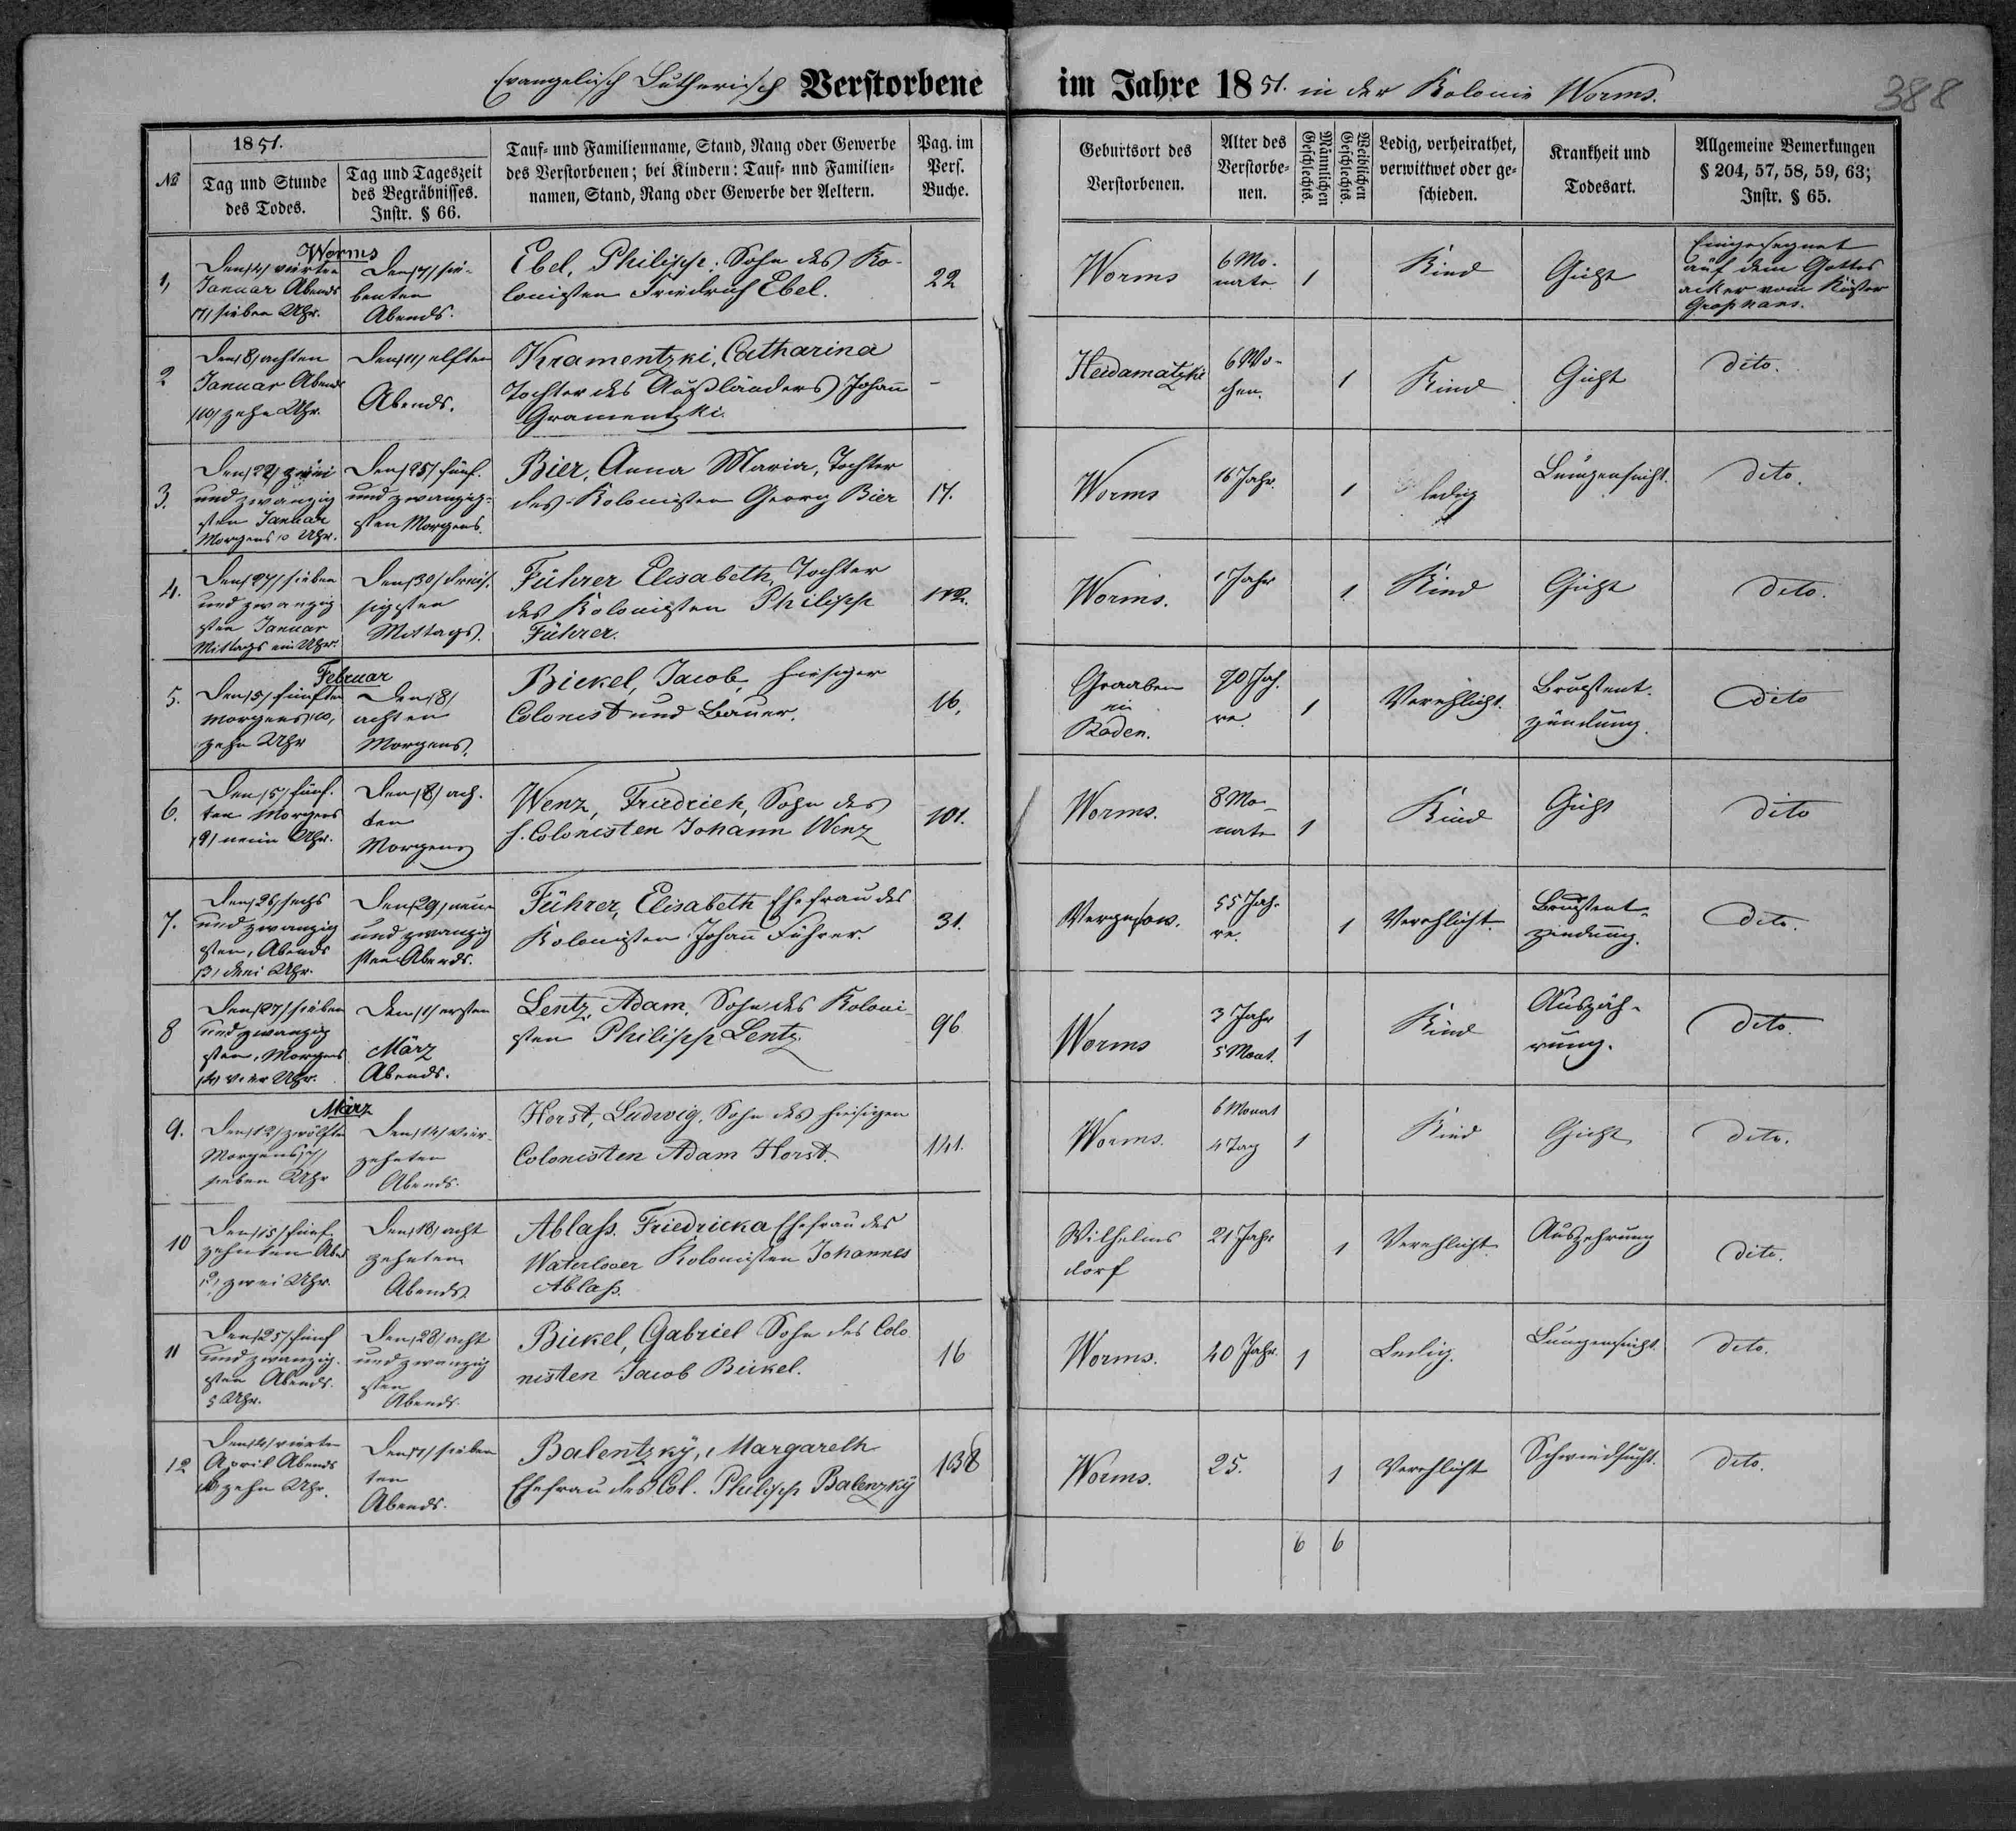 Evangelisch Lutherisch Verstorbene im Jahre 1851. in der Kolonie Worms.
388
№
1851.
Tag und Stunde
des Todes.
Tag und Tageszeit
des Begräbnisses.
Instr. § 66.
Tauf- und Familienname, Stand, Rang oder Gewerbe
des Verstorbenen; bei Kindern: Tauf- und Familien-
namen, Stand, Rang oder Gewerbe der Aeltern.
Pag. im
Pers.
Buche.
Geburtsort des
Verstorbenen.
Alter des
Verstorbe-
nen.
Männlichen
Geschlechts.
Weiblichen
Geschlechts.
Ledig, verheirathet,
verwittwet oder ge-
schieden.
Krankheit und
Todesart.
Allgemeine Bemerkungen
§ 204, 57, 58, 59, 63;
Instr. § 65.
Worms
1,
Den /4/ vierten
Januar Abends
/7/ sieben Uhr.
Den /7/ sie-
benten
Abends.
Ebel, Philipp: Sohn des Ko-
lonisten Friedrich Ebel.
22
Worms
6 Mo-
nate
1
Kind
Gicht
Eingesegnet
auf dem Gottes
acker vom Küster
Grosshans.
2
Den /8/ achten
Januar Abends
/10/ zehn Uhr.
Den /11/ elften
Abends.
Kramentzki, Catharina
Tochter des Außländers Johann
Gramentzki.
-
Heidamatzki
6 Wo-
chen.
1
Kind
Gicht
dito.
3.
Den /22/ zwei
und zwanzig
sten Januar
Morgens 10 Uhr.
Den /25/ fünf.
und zwanzig-
sten Morgens.
Bier, Anna Maria, Tochter
des Kolonisten Georg Bier
17.
Worms
16 Jahr.
1
ledig
Lungensucht.
dito.
4.
Den /27/ sieben
und zwanzig
sten Januar
Mittags ein Uhr.
Den /30/ dreis.
sigsten
Mittags.
Führer Elisabeth, Tochter
des Kolonisten Philipp
Führer.
112.
Worms.
1 Jahr
1
Kind
Gicht
dito.
Februar
5.
Den /5/ fünften
Morgens /10/
zehn Uhr
Den /8/
achten
Morgens.
Bickel, Jacob, hiesiger
Colonist und Bauer.
16.
Graaben
in
Baden.
70 Jah.
re.
1
Verehlicht.
Brustent-
zündung.
dito
6.
Den /5/ fünf.
ten Morgens
/9/ neun Uhr.
Den /8/ ach.
ten
Morgens
Wenz, Friedrich, Sohn des
h. Colonisten Johann Wenz
101.
Worms.
8 Mo-
nate
1
Kind
Gicht
dito
7.
Den /26/ sechs
und zwanzig
sten, Abends
/3/ drei Uhr.
Den /29/ neun
und zwanzig
sten Abends.
Führer, Elisabeth Ehefrau des
Kolonisten Johann Führer.
31.
55 Jah-
re.
1
Verehlicht.
Brustent-
zündung.
dito.
8
Den /27/ sieben
und zwanzig
sten, Morgens
/4/ vier Uhr.
Den /1/ ersten
März
Abends.
Lentz, Adam, Sohn des Koloni-
sten Philipp Lentz.
96
Worms
3 Jahr
5 Monat.
1
Kind
Auszäh-
rung.
dito.
März
9.
Den /12/ zwölften
Morgens /7/
sieben Uhr
Den /14/ vier-
zehnten
Abends.
Horst, Ludwig, Sohn des hiesigen
Colonisten Adam Horst.
141.
Worms.
6 Monat
4 Tag
1
Kind
Gicht
dito.
10
Den /15/ fünf
zehnten Abds
/2/ zwei Uhr.
Den /18/ acht
zehnten
Abends.
Ablass. Friedricka Ehefrau des
Waterlooer Kolonisten Johannes
Ablass.
Wilhelms
dorf
21 Jahr
1
Verehlicht
Auszehrung
dito.
11
Den /25/ fünf
und zwanzig.
sten Abends.
5 Uhr.
Den /28/ acht
und zwanzig
sten
Abends.
Bickel, Gabriel Sohn des Colo
nisten Jacob Bickel.
16
Worms.
20 Jahr.
1
Ledig.
Lungensucht.
dito.
12
Den /4/ vierten
April Abends
zehn Uhr.
Den /7/ sieben
ten
Abends.
Balentzkÿ, Margareth
Ehefrau des Col. Philipp Balenzkÿ
138
Worms.
25.
1
Verehlicht
Schwindsucht.
dito.
6
6